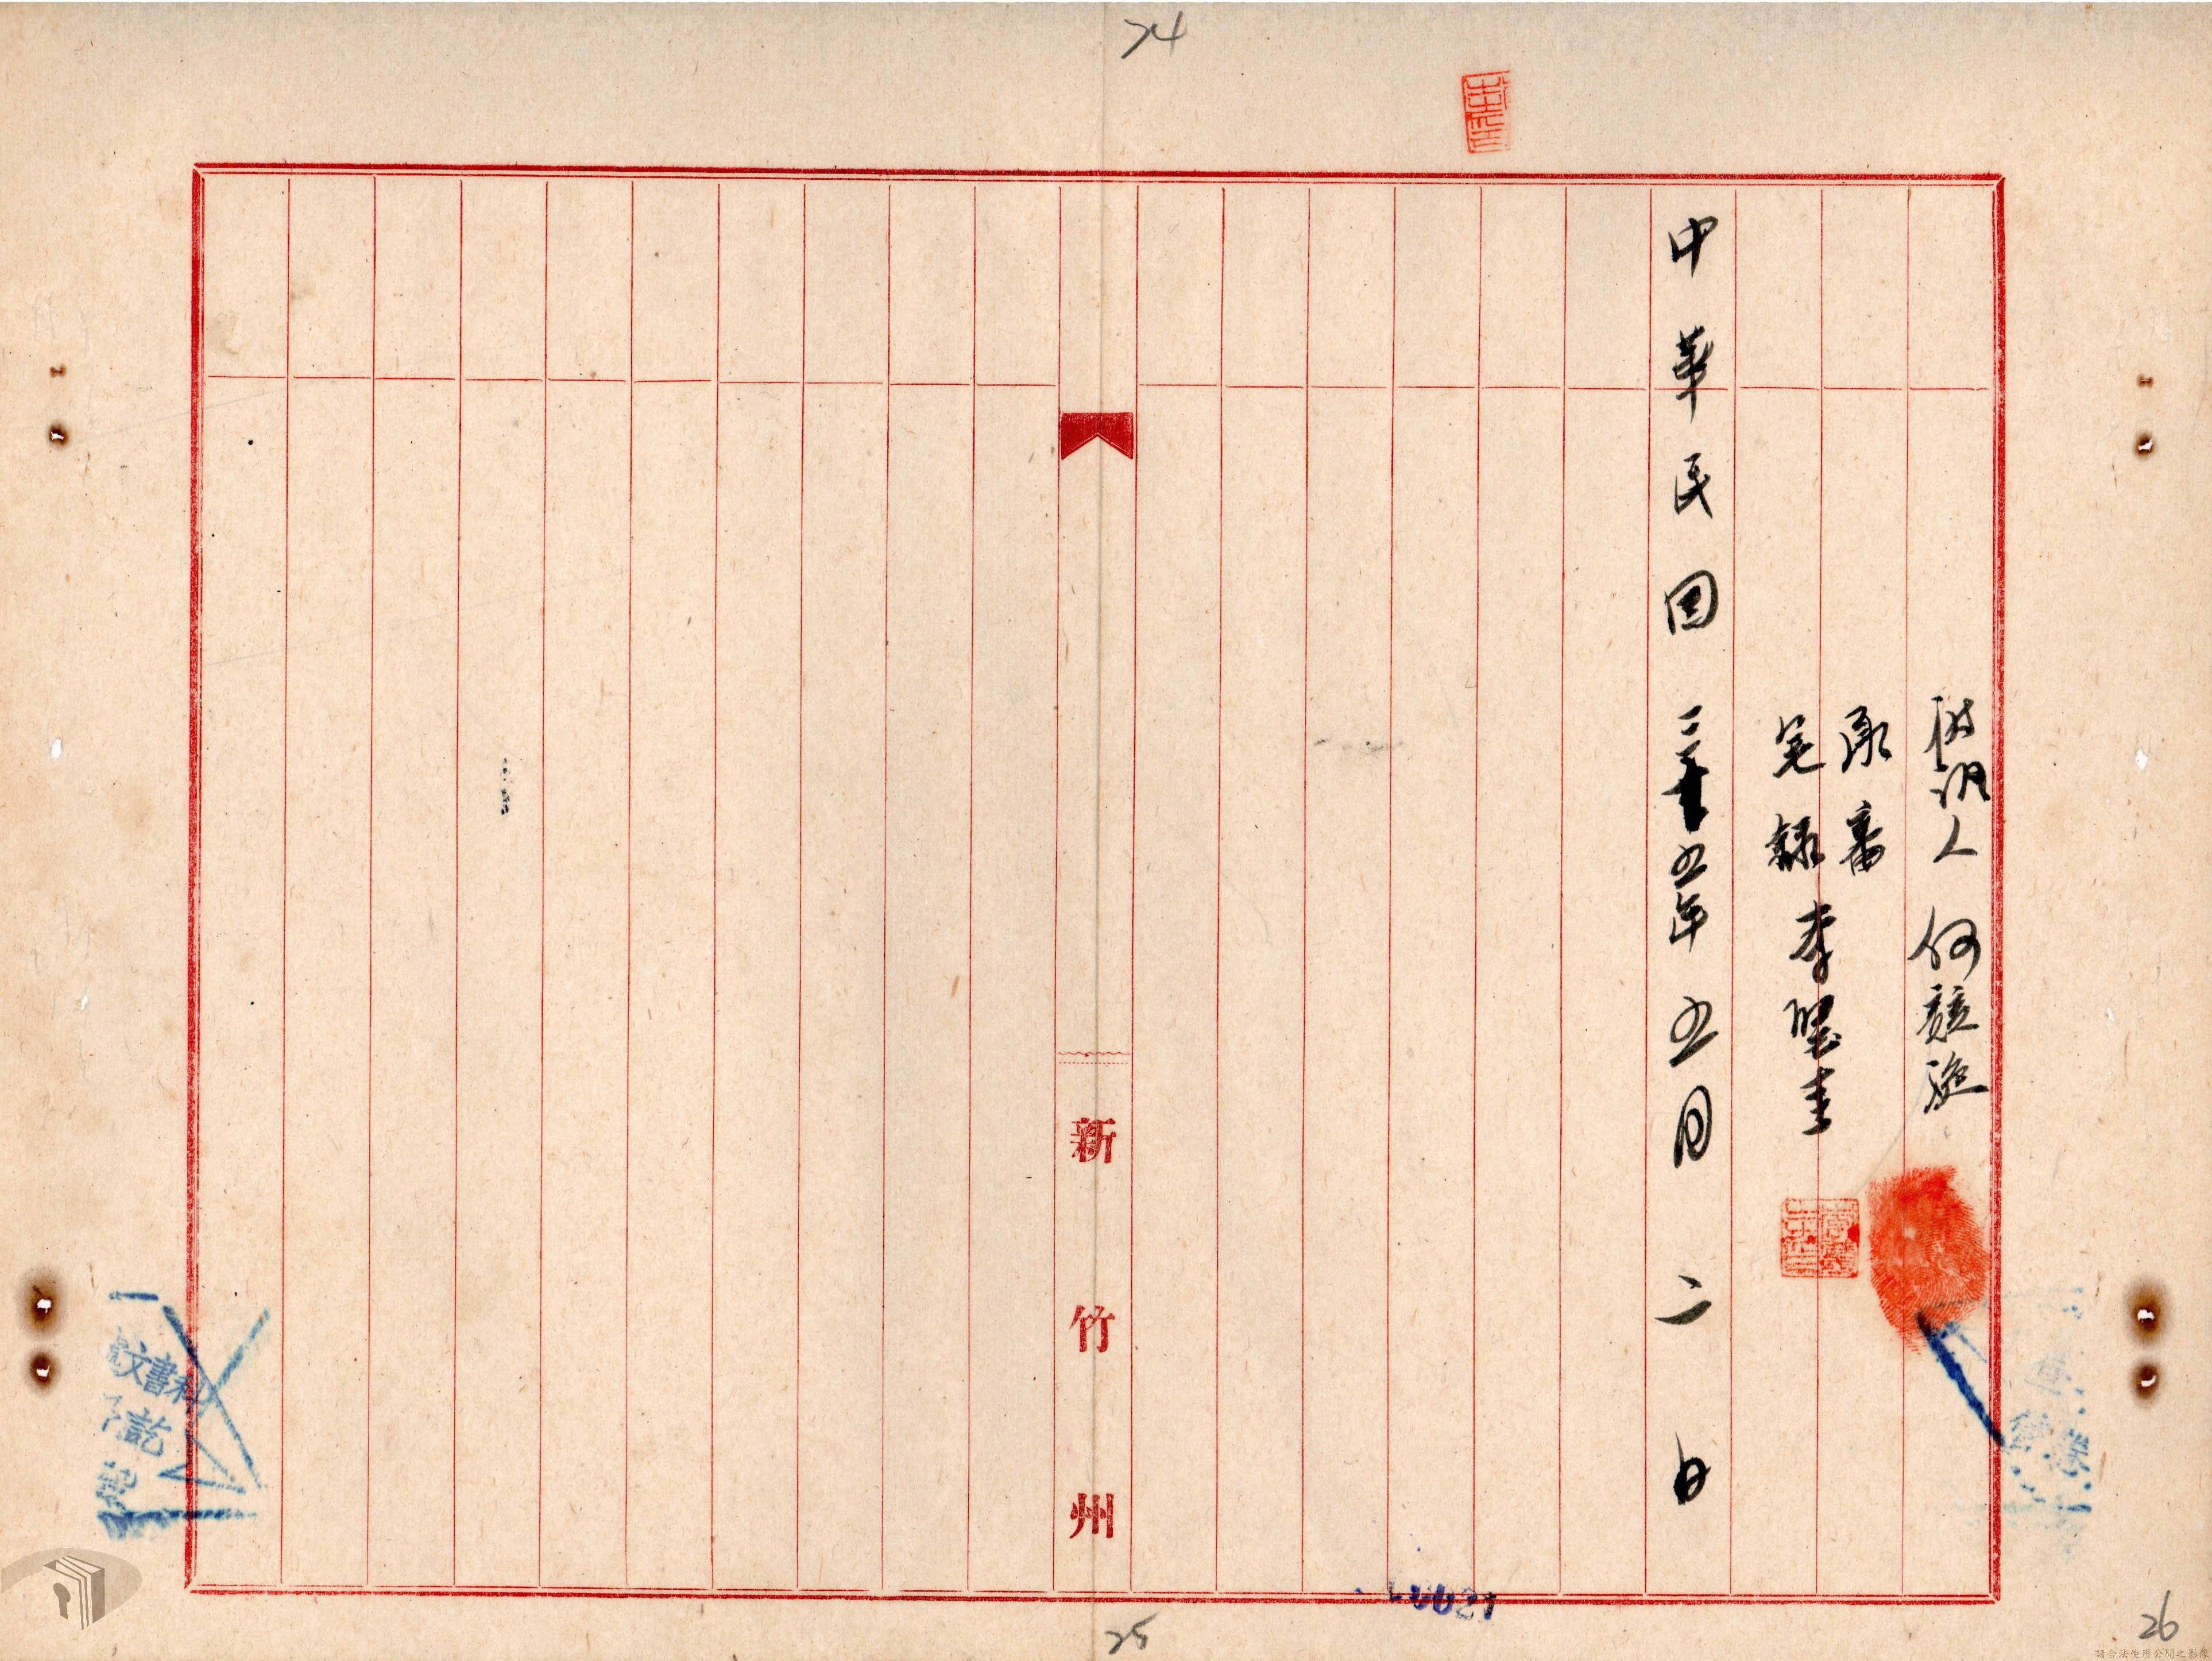 24
被訊人 何競㳺
承審
筆錄 李堅圭
中華民国三十五年五月二日
新竹州
文書科
訖
25
26
請合法使用公開之影像